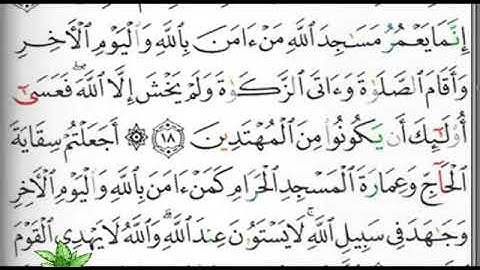 إِنَّمَا يَعْمُرُ مَسَٰجِدَ ٱللَّهِ مَنْ ءَامَنَ بِٱللَّهِ وَٱلْيَوْمِ ٱلْأَخِرِ
وَأَقَامَ ٱلصَّلَوٰةَ وَءَاتَى ٱلزَّكَوٰةَ وَلَمْ يَخْشَ إِلَّا ٱللَّهَ ۖ فَعَسَىٰٓ
أُو۟لَٰٓئِكَ أَن يَكُونُوا۟ مِنَ ٱلْمُهْتَدِينَ ١٨ ۞ أَجَعَلْتُمْ سِقَايَةَ
ٱلْحَآجِّ وَعِمَارَةَ ٱلْمَسْجِدِ ٱلْحَرَامِ كَمَنْ ءَامَنَ بِٱللَّهِ وَٱلْيَوْمِ ٱلْأَخِرِ
وَجَٰهَدَ فِى سَبِيلِ ٱللَّهِ ۚ لَا يَسْتَوُۥنَ عِندَ ٱللَّهِ ۗ وَٱللَّهُ لَا يَهْدِى ٱلْقَوْمَ